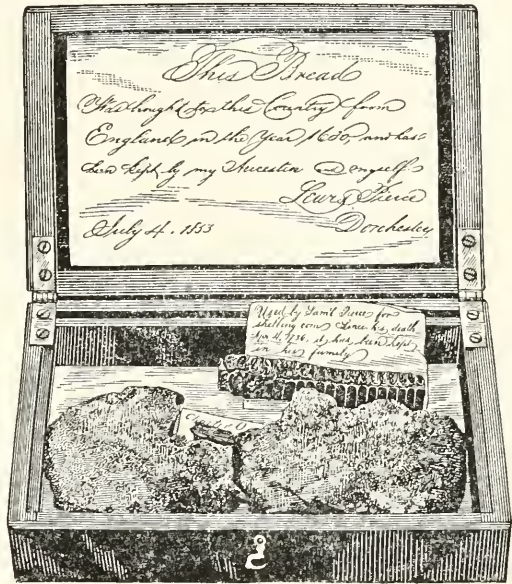 This Bread
Was brought to this Country from
England in the Year 1630, and has
been kept by my Ancestors and myself
Lewis Pierce
July 4. 1853 Dorchester
Used by Sam'l Pierce for
shelling corn Since his death
4, 1736, it has been kept
in his family